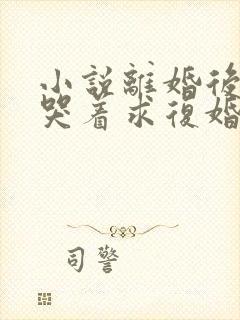 小說離婚後
哭着求復婚
司警